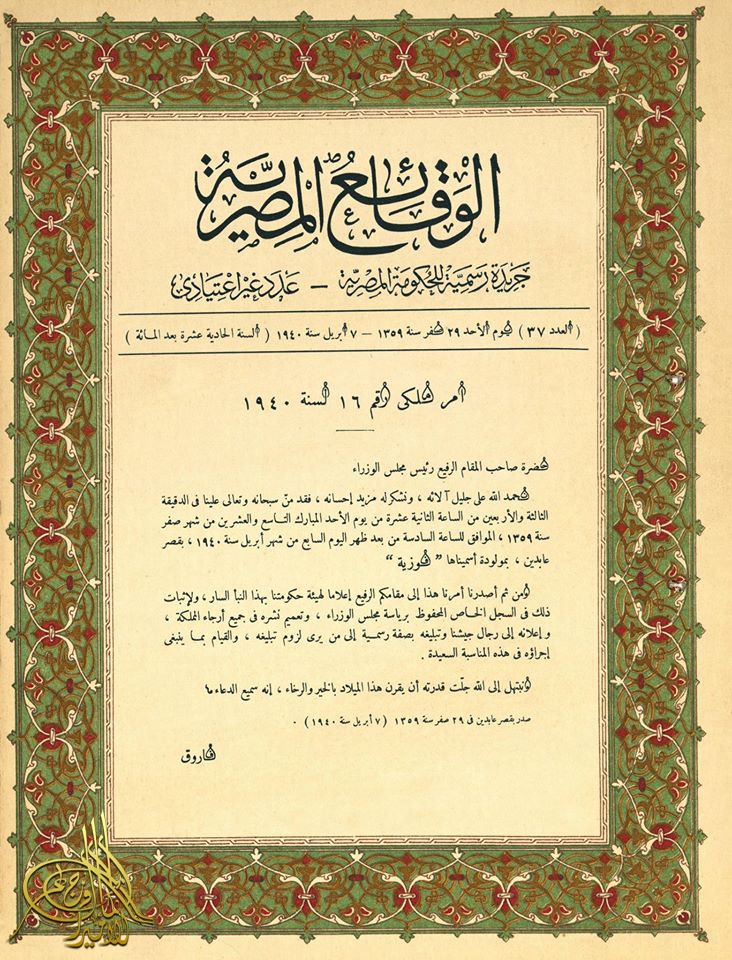 الوقائع المصرية
جريدة رسمية للحكومة المصرية – عدد غير اعتيادى
( العدد ٣٧ ) يوم الأحد ٢٩ صفر سنة ١٣٥٩ – ٧ أبريل سنة ١٩٤٠ ( السنة الحادية عشرة بعد المائة )
أمر ملكى رقم ١٦ لسنة ١٩٤٠
حضرة صاحب المقام الرفيع رئيس مجلس الوزراء
نحمد الله على جليل آلائه ، ونشكر له مزيد إحسانه ، فقد منّ سبحانه وتعالى علينا فى الدقيقة
الثالثة والأربعين من الساعة الثانية عشرة من يوم الأحد المبارك التاسع والعشرين من شهر صفر
سنة ١٣٥٩ ، الموافق للساعة السادسة من بعد ظهر اليوم السابع من شهر أبريل سنة ١٩٤٠ ، بقصر
عابدين ، بمولودة أسميناها " فوزية "
ومن ثم أصدرنا أمرنا هذا إلى مقامكم الرفيع إعلاما لهيئة حكومتنا بهذا النبأ السار ، ولإثبات
ذلك فى السجل الخاص المحفوظ برياسة مجلس الوزراء ، وتعميم نشره فى جميع أرجاء المملكة ،
وإعلانه إلى رجال جيشنا وتبليغه بصفة رسمية إلى من يرى لزوم تبليغه ، والقيام بما ينبغى
إجراؤه فى هذه المناسبة السعيدة .
ونبتهل إلى الله جلّت قدرته أن يقرن هذا الميلاد بالخير والرخاء ، إنه سميع الدعاء ما
صدر بقصر عابدين فى ٢٩ صفر سنة ١٣٥٩ ( ٧ أبريل سنة ١٩٤٠ ) .
فاروق